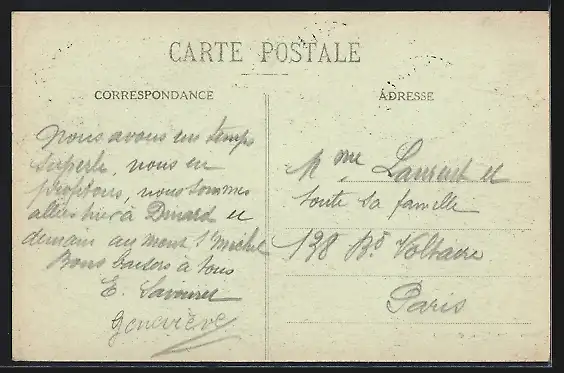 CARTE POSTALE
CORRESPONDANCE
ADRESSE
Nous avons un temps
superbe, nous en
profitons, nous sommes
allés hier à Dinard et
demain au mont St Michel
Bons baisers à tous
E.
Geneviève
Mme Laurent et
toute sa famille
138 Bd Voltaire
Paris